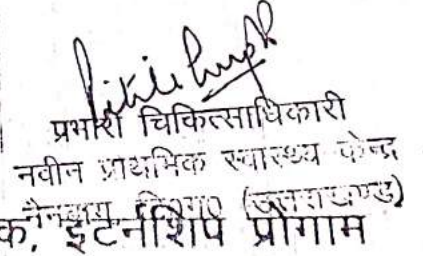 प्रभारी चिकित्साधिकारी
नवीन प्राथमिक स्वास्थ्य केन्द्र
(उत्तराखण्ड)
क, इंटर्नशिप प्रोगाम